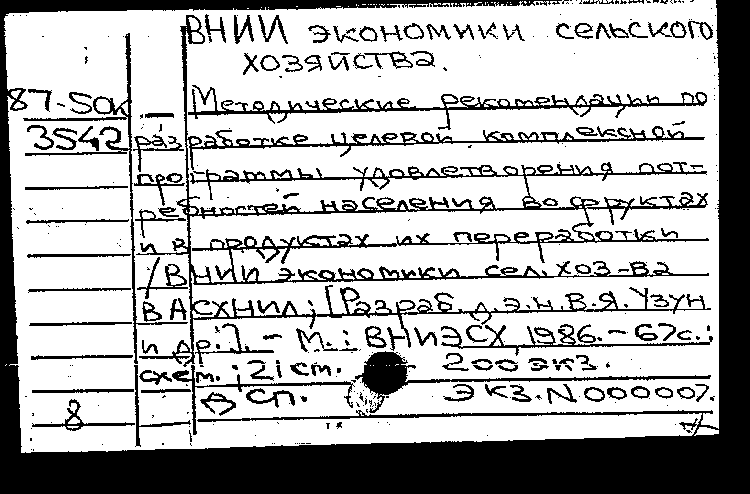 ВНИИ экономики сельского
хозяйства.
87-50к — Методические рекомендации по
3542 разработке целевой комплексной
программы удовлетворения пот-
ребностей населения во фруктах
и в продуктах их переработки
/ВНИИ экономики сел. хоз-ва
ВАСХНИЛ; [Разраб. д.э.н. В.Я. Узун
и др.]. - М.: ВНИЭСХ, 1986. - 67с.:
схем.; 21 см. 200 экз.
8 Д сп. ЭКЗ. N 000007.